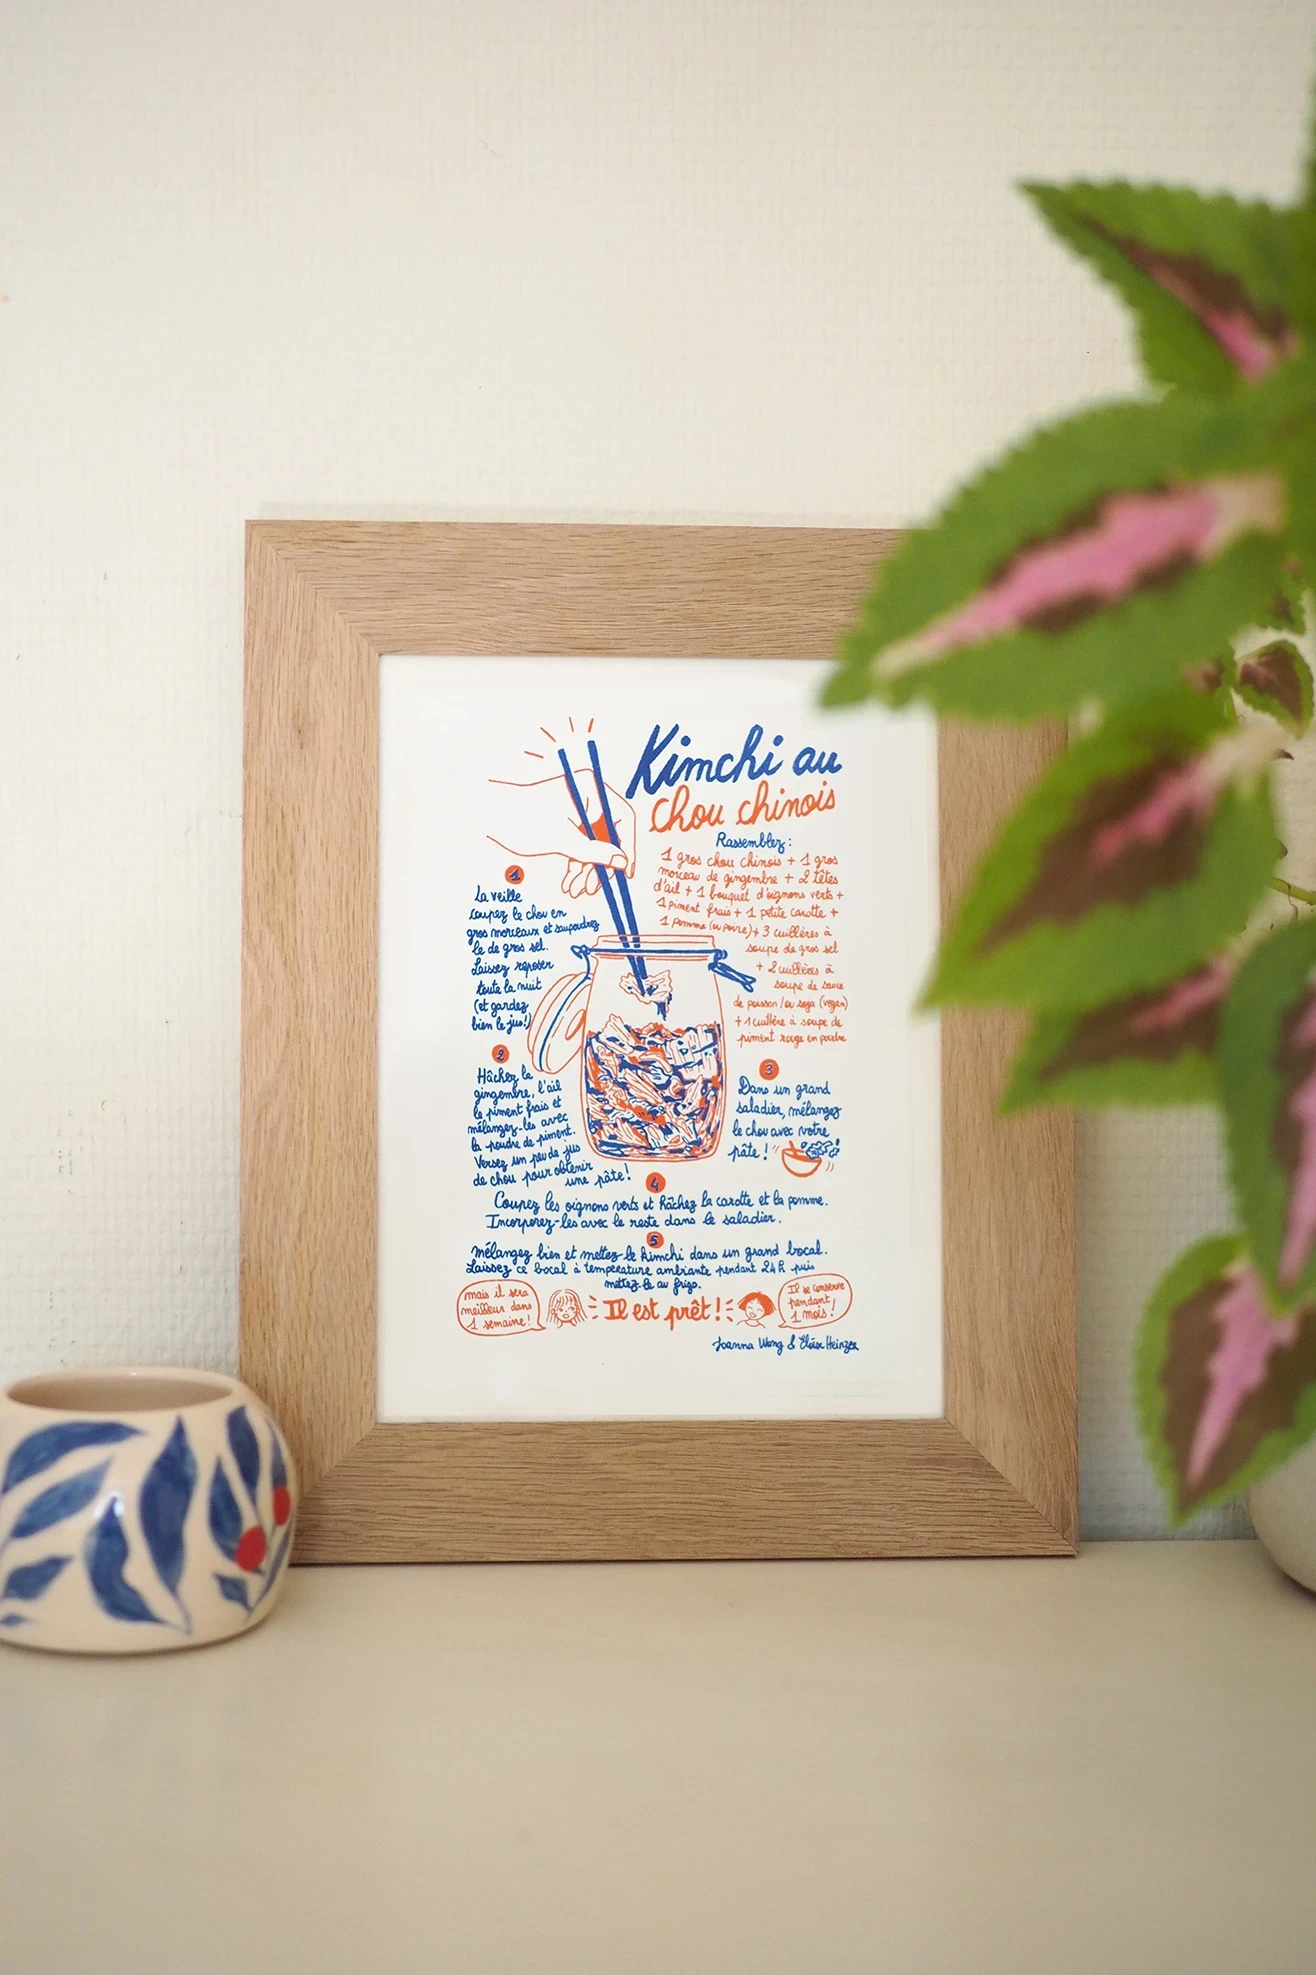 Kimchi au
chou chinois
Rassemblez :
1 gros chou chinois + 1 gros
morceau de gingembre + 2 têtes
d'ail + 1 bouquet d'oignons verts +
1 piment frais + 1 petite carotte +
1 pomme (ou poire) + 3 cuillères à
soupe de gros sel
+ 2 cuillères à
soupe de sauce
de poisson / ou soja (vegan)
+ 1 cuillère à soupe de
piment rouge en poudre
1
La veille
coupez le chou en
gros morceaux et saupoudrez
le de gros sel.
Laissez reposer
toute la nuit
(et gardez
bien le jus!)
2
Hâchez le
gingembre, l'ail
le piment frais et
mélangez-les avec
la poudre de piment.
Versez un peu de jus
de chou pour obtenir
une pâte!
3
Dans un grand
saladier, mélangez
le chou avec votre
pâte !
4
Coupez les oignons verts et hâchez la carotte et la pomme.
Incorporez-les avec le reste dans le saladier.
5
Mélangez bien et mettez-le kimchi dans un grand bocal.
Laissez ce bocal à température ambiante pendant 24h puis
mettez-le au frigo.
mais il sera
meilleur dans
1 semaine!
Il est prêt!
Il se conserve
pendant
1 mois!
Joanna Wong & Eloïse Heinzer